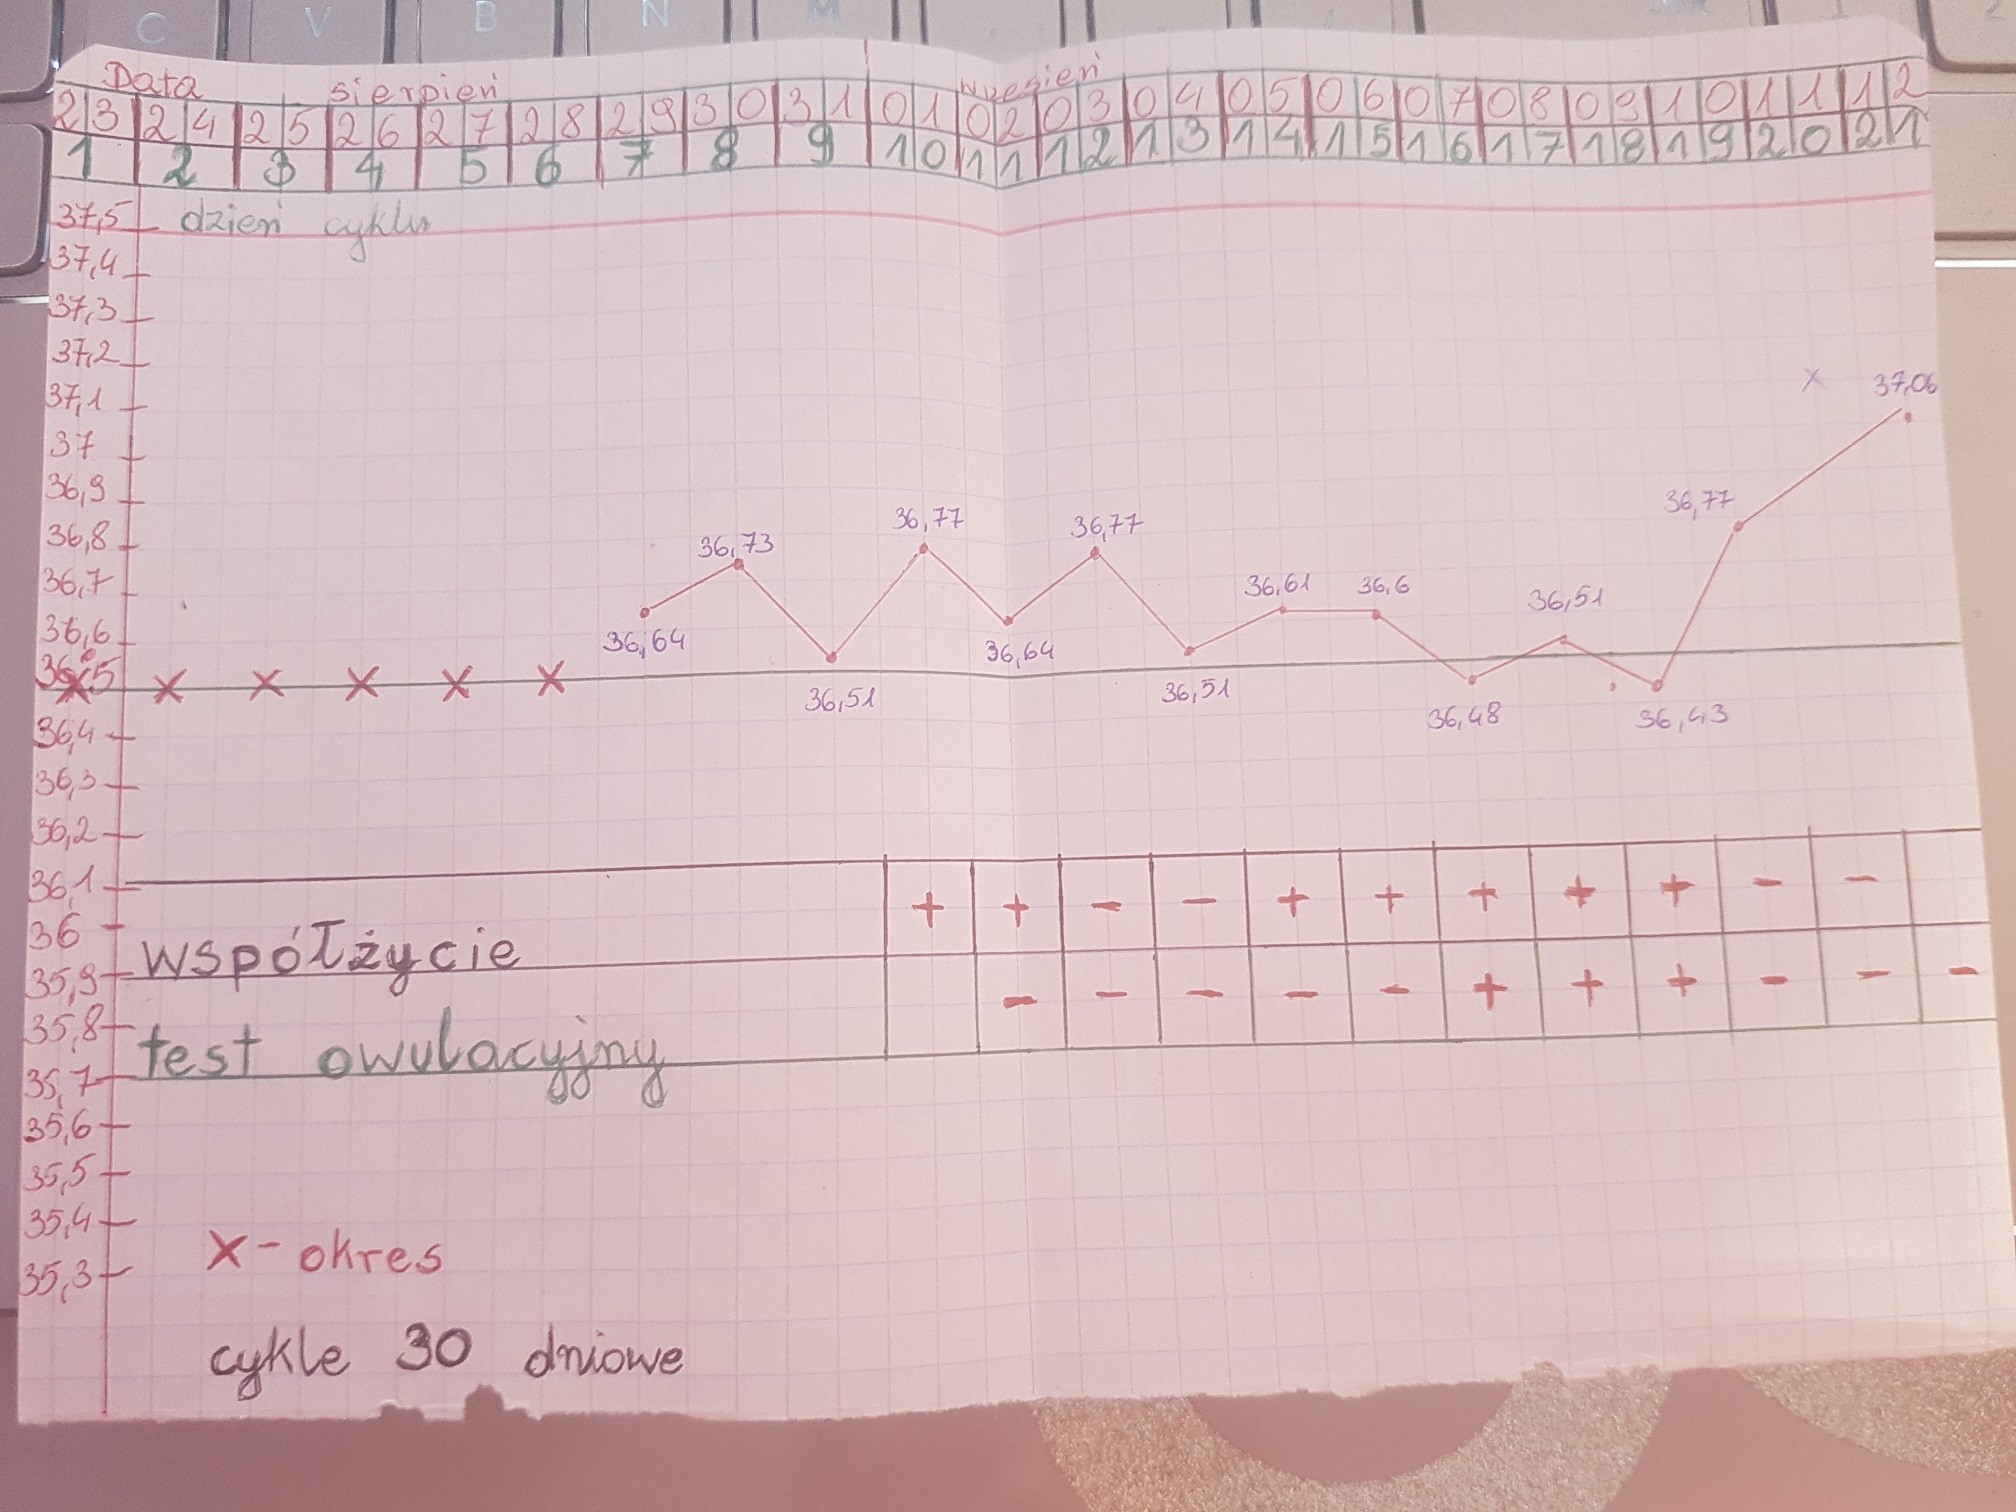 C V B N M
Data sierpień wrzesień
23 24 25 26 27 28 29 30 31 01 02 03 04 05 06 07 08 09 10 11 12
1 2 3 4 5 6 7 8 9 10 11 12 13 14 15 16 17 18 19 20 21
37,5 dzień cyklu
37,4
37,3
37,2
37,1 x 37,06
37
36,9 36,77
36,8 36,73 36,77 36,77
36,7 36,61 36,6 36,51
36,6 36,64 36,64
36,5 x x x x x x 36,51 36,51 36,48 36,43
36,4
36,3
36,2
36,1 + + - - + + + + + - -
36
35,9 współżycie - - - - - + + + - - -
35,8
35,7 test owulacyjny
35,6
35,5
35,4
35,3 x - okres
cykle 30 dniowe